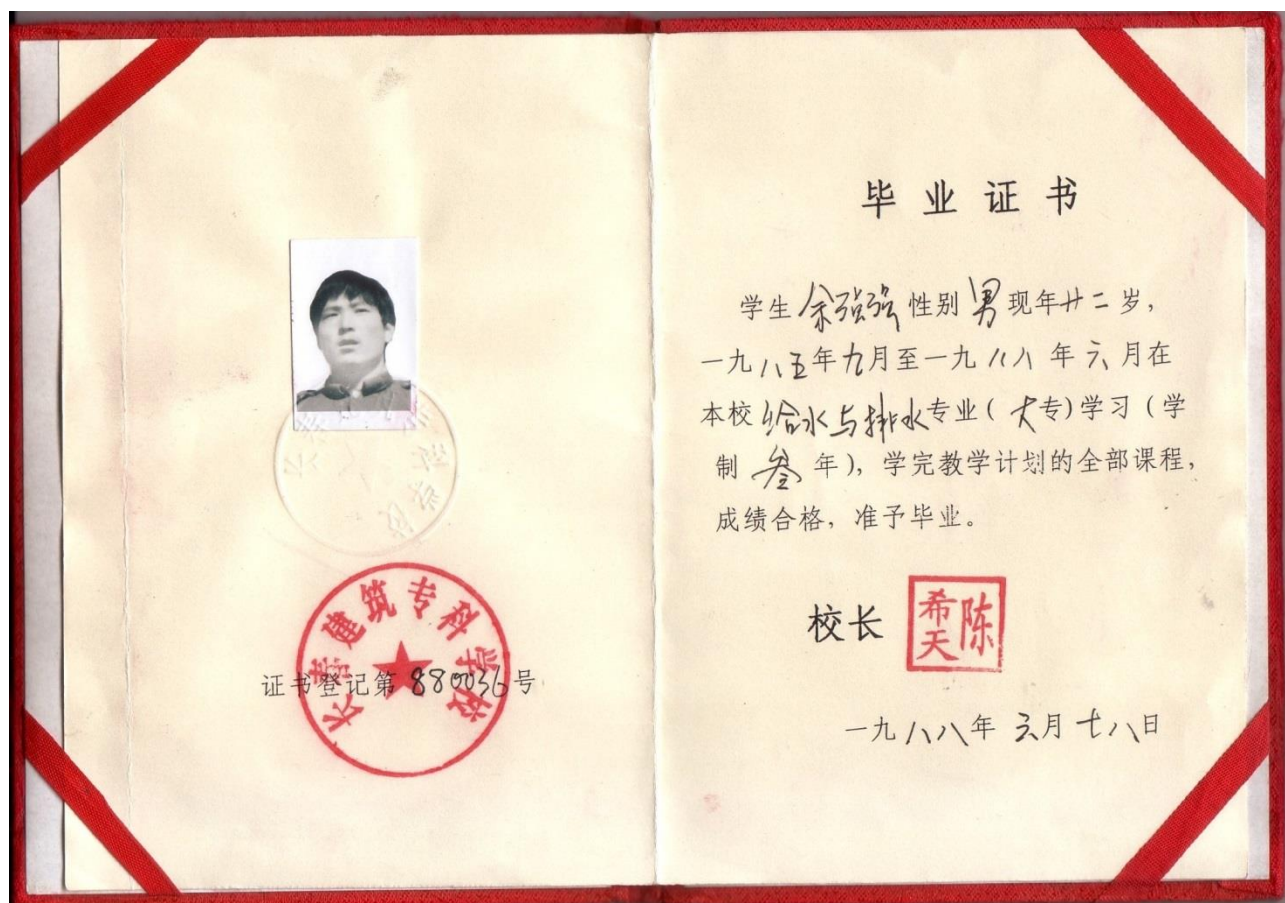 长春建筑专科学校
证书登记第880036号
毕业证书
学生余强强性别男现年廿二岁,
一九八五年九月至一九八八年六月在
本校给水与排水专业(大专)学习(学
制叁年),学完教学计划的全部课程,
成绩合格,准予毕业。
校长 陈希天
一九八八年六月十八日